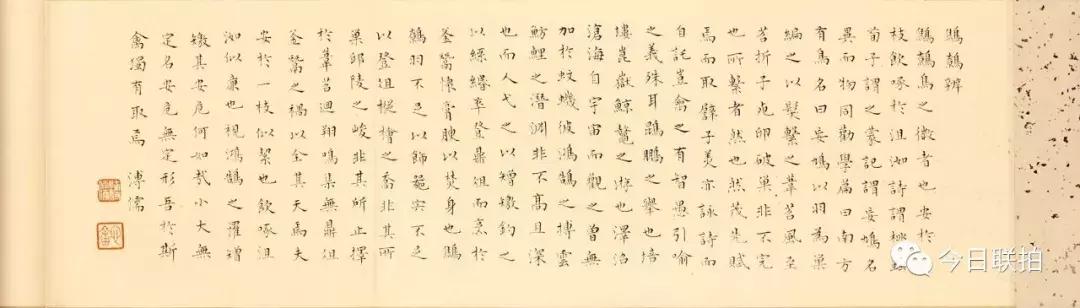 鷦鷯辨
鷦鷯鳥之微者也安於一
枝飲啄於沮洳詩謂桃蟲
荀子謂之蒙記謂妄鳩名
異而物同勸學篇曰南方
有鳥名曰妄鳩以羽為巢
編之以髮繫之葦苕風至
苕折子死卵破巢非不完
也所繫者然也然茂先賦
焉而取譬子美亦詠詩而
自託豈禽之有智愚引喻
之義殊耳鵾鵬之舉也培
塿崑嶽鯨鼇之游也澤洿
滄海自宇宙而觀之曾無
加於蚊蟣彼鴻鵠之摶雲
魴鯉之潛淵非不高且深
也而人弋之以矰繳釣之
以綵緡卒登鼎俎而烹於
釜鬵懷膏腴以焚身也鷦
鷯羽不足以飾旄實不足
以登俎樅檜之喬非其所
巢邱陵之峻非其所止擇
於葦苕迴翔鳴集無鼎俎
釜鬵之禍以全其天焉夫
安於一枝似絜也飲啄沮
洳似廉也視鴻鵠之羅矰
繳其安危何如哉小大無
定名安危無定形吾於斯
禽獨有取焉 溥儒
今日联拍